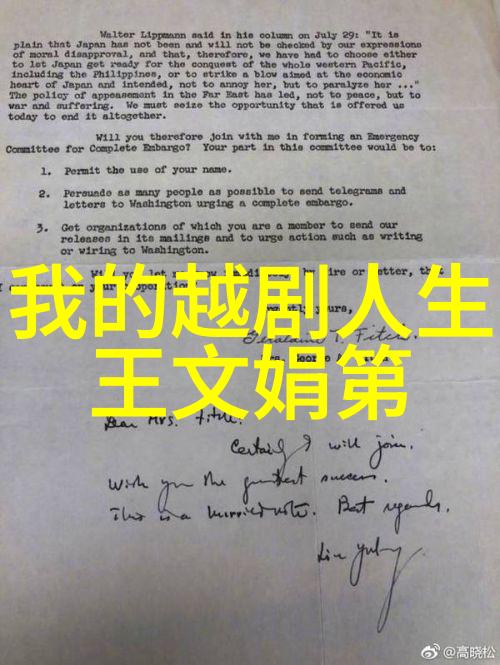 Walter Lippmann said in his column on July 29: "It is
plain that Japan has not been and will not be checked by our expressions
of moral disapproval, and that, therefore, we have had to choose either
to let Japan get ready for the conquest of the whole western Pacific,
including the Philippines, or to strike a blow aimed at the economic
heart of Japan and intended, not to annoy her, but to paralyze her ..."
The policy of appeasement in the Far East has led, not to peace, but to
war and suffering. We must seize the opportunity that is offered us
today to end it altogether.
Will you therefore join with me in forming an Emergency
Committee for Complete Embargo? Your part in this committee would be to:
1. Permit the use of your name.
2. Persuade as many people as possible to send telegrams and
letters to Washington urging a complete embargo.
3. Get organizations of which you are a member to send our
releases in its mailings and to urge action such as writing
or wiring to Washington.
wire or letter, that
我的越剧人生
yours,
Geraldine T. Fitch
Mrs. George
王文娟第
Dear Mrs. Fitch:
Certainly I will join.
Wish you the greatest success.
This is a hurried note. Best regards.
Lin Yutang
@高晓松